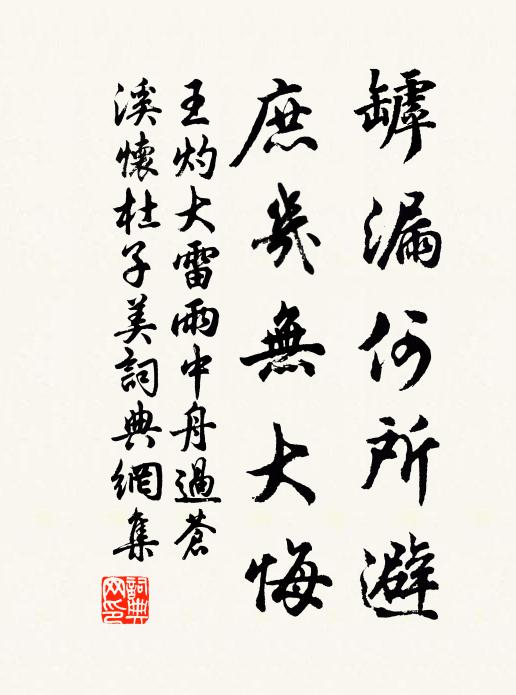 罅漏何所避
庶幾無大悔
王灼大雷雨中舟過蒼
溪懷杜子美詞典網集
詞典
网印